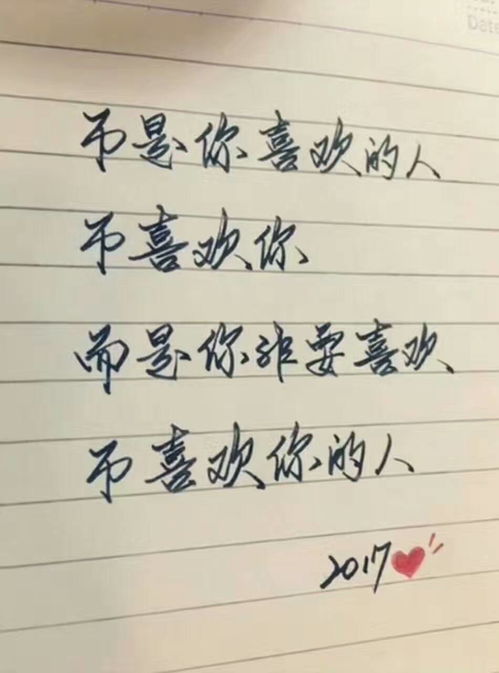 Date
不是你喜欢的人
不喜欢你
而是你非要喜欢
不喜欢你的人
2017